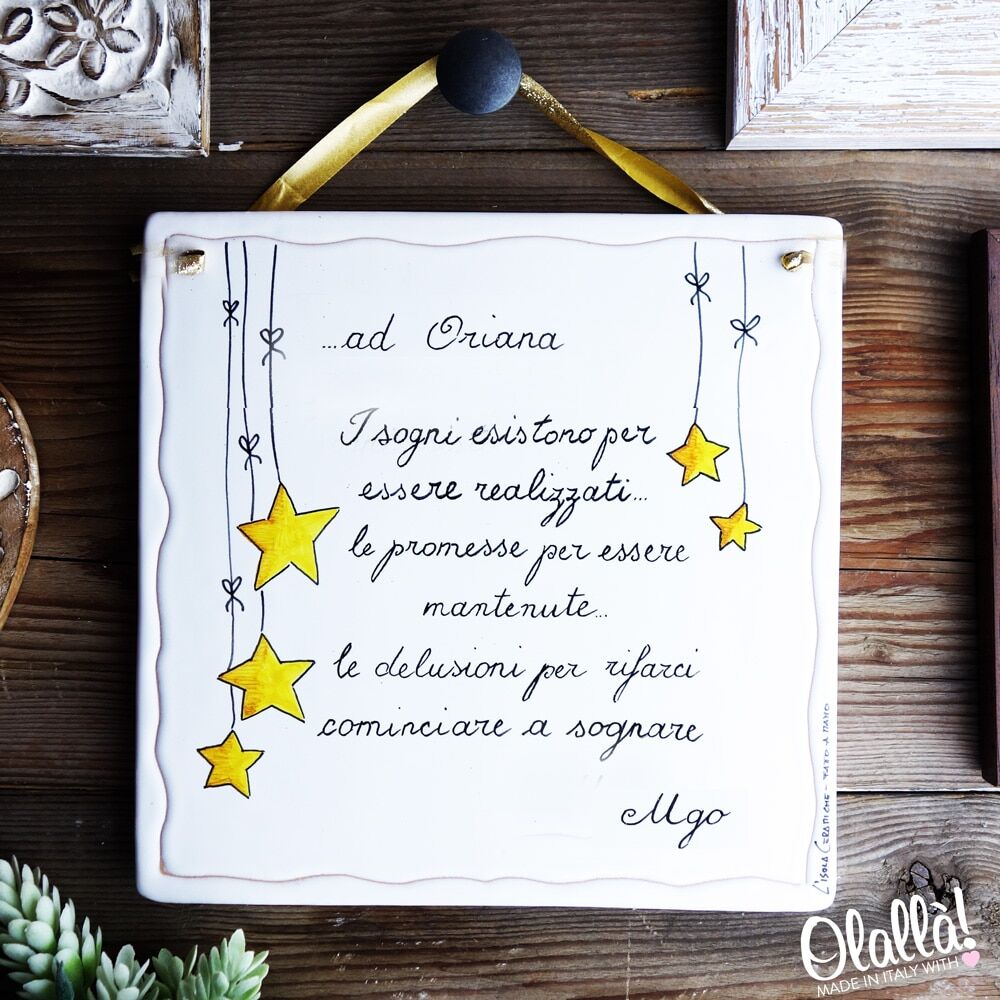 ...ad Oriana
I sogni esistono per
essere realizzati...
le promesse per essere
mantenute...
le delusioni per rifarci
cominciare a sognare
Ugo
L'ISOLA CERAMICHE - FATTO A MANO
Olallà!
MADE IN ITALY WITH